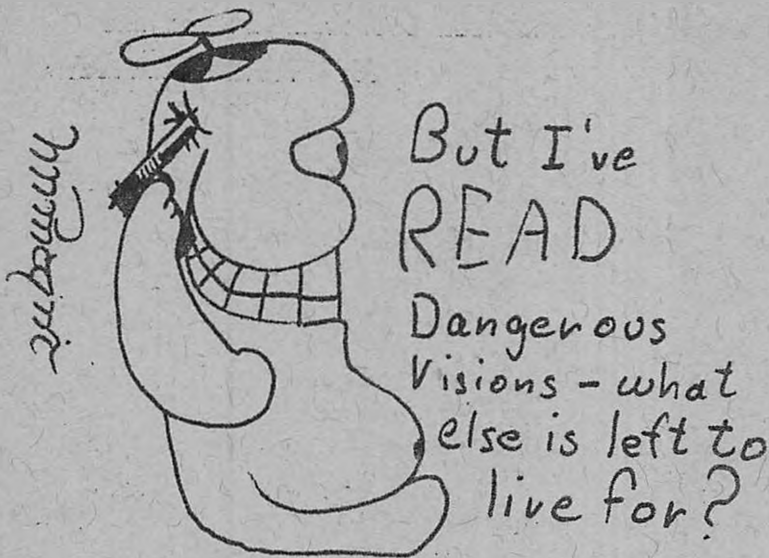 But I've
READ
Dangerous
Visions – what
else is left to
live for?